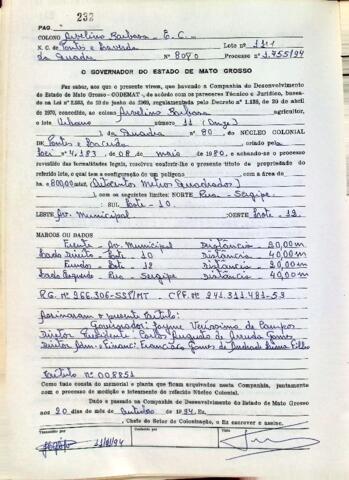 PAG. 232
COLONO Avelino Barbosa - E.C.
N. C. de Pontes e Lacerda Lote nº 111
Quadra Nº 8080 Processo nº 1.755/94
O GOVERNADOR DO ESTADO DE MATO GROSSO
Faz saber, aos que o presente virem, que havendo a Companhia de Desenvolvimento
do Estado de Mato Grosso - CODEMAT -, de acordo com os pareceres Técnico e Jurídico, basea-
do na Lei nº de junho de regulamentada pelo Decreto nº de 20 de abril
de 1970, concedido ao colono Avelino Barbosa Agricultor, o
lote Urbano número 11 (onze)
Quadra nº 80. DO NÚCLEO COLONIAL
DE Pontes e Lacerda criado pela
Lei nº 4.183 de 08 de maio de 1980, e achando-se o processo
revestido das formalidades legais, resolveu conferir-lhe o presente título de propriedade do
referido lote, o qual tem a configuração de um polígono com a área de
800,00 mts² (Oitocentos Metros Quadrados)
com os seguintes limites: NORTE Rua - Sergipe
SUL Lote - 10
LESTE Av. Municipal OESTE Lote - 12
MARCOS OU DADOS
Frente - Av. Municipal Distância - 20,00m
Lado Direito - Lote 10 Distância - 40,00m
Fundos - Lote 12 Distância - 20,00m
Lado Esquerdo - Rua - Sergipe Distância - 40,00m
RG. Nº 266.306-SSP/MT - CPF. Nº 241.311.481-53
Assinaram o presente título:
Governador: Jayme Veríssimo de Campos
Diretor Presidente: Carlos Augusto de Arruda Gomes
Diretor Adm. e Financ: Francisco Gomes de Andrade Lima Filho
Título Nº 008851
Como tudo consta do memorial e planta que ficam arquivados nesta Companhia, juntamente
com o processo de medição e loteamento do referido Núcleo Colonial.
Dado e passado na Companhia de Desenvolvimento do Estado de Mato Grosso
aos 20 dias do mês de outubro de 1994, Eu,
Chefe do Setor de Colonização, o fiz escrever e assino.
Transcrito por Conferido por Visto
94